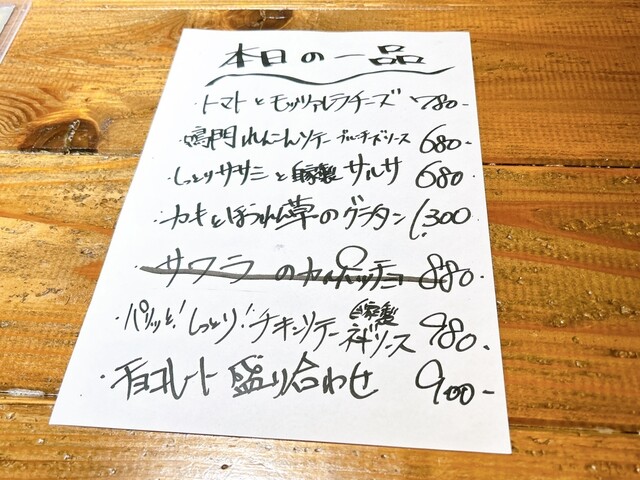 本日の一品
・トマトとモッツァレラチーズ 780-
・鳴門れんこんソテー ブルーチーズソース 680-
・しっとりササミと自家製サルサ 680-
・カキとほうれん草のグラタン 1,300
・サワラのカルパッチョ 880.
・パリッと!しっとり!チキンソテー 自家製ネギソース 980.
・チョコレート盛り合わせ 900-